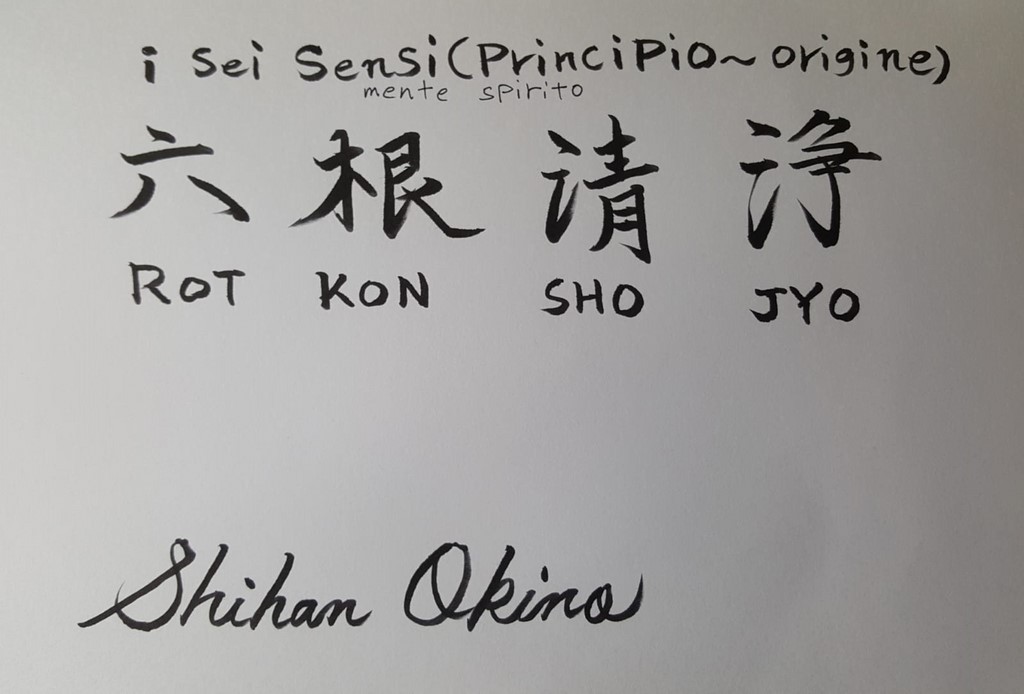 i sei Sensi (PrinciPio~origine)
mente spirito
六根清浄
ROT KON SHO JYO
Shihan Okino